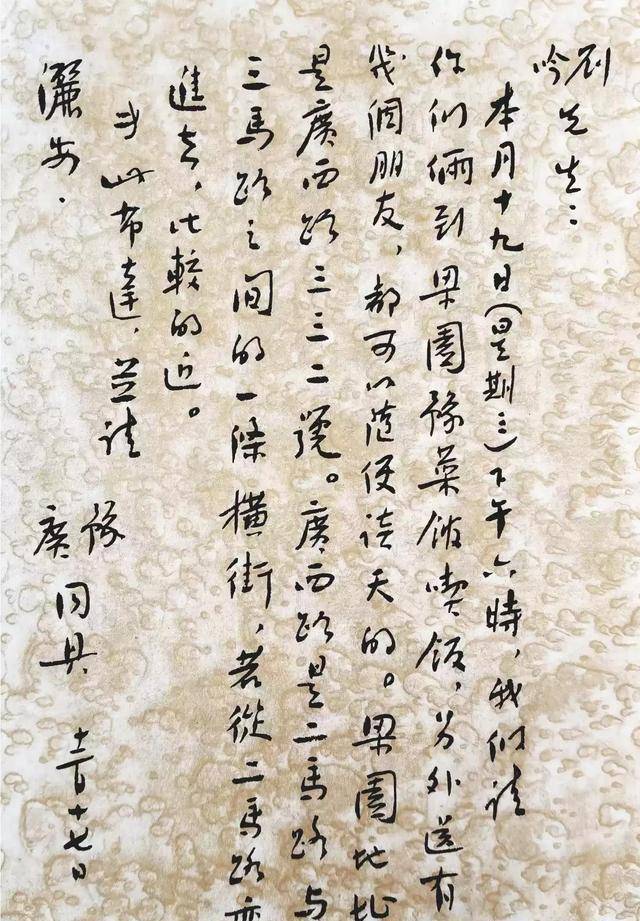 刘
吟先生：
本月十九日(星期三)下午六時，我们请
你们俩到梁園豫菜館喫飯，另外還有
幾個朋友，都可以隨便談天的。梁園地址
是廣西路三三二號。廣西路是二馬路与
三馬路之间的一條橫街，若從二馬路弯
進去，比較的近。
专此布達，並请
儷安。
豫
廣 同具 十二月十七日